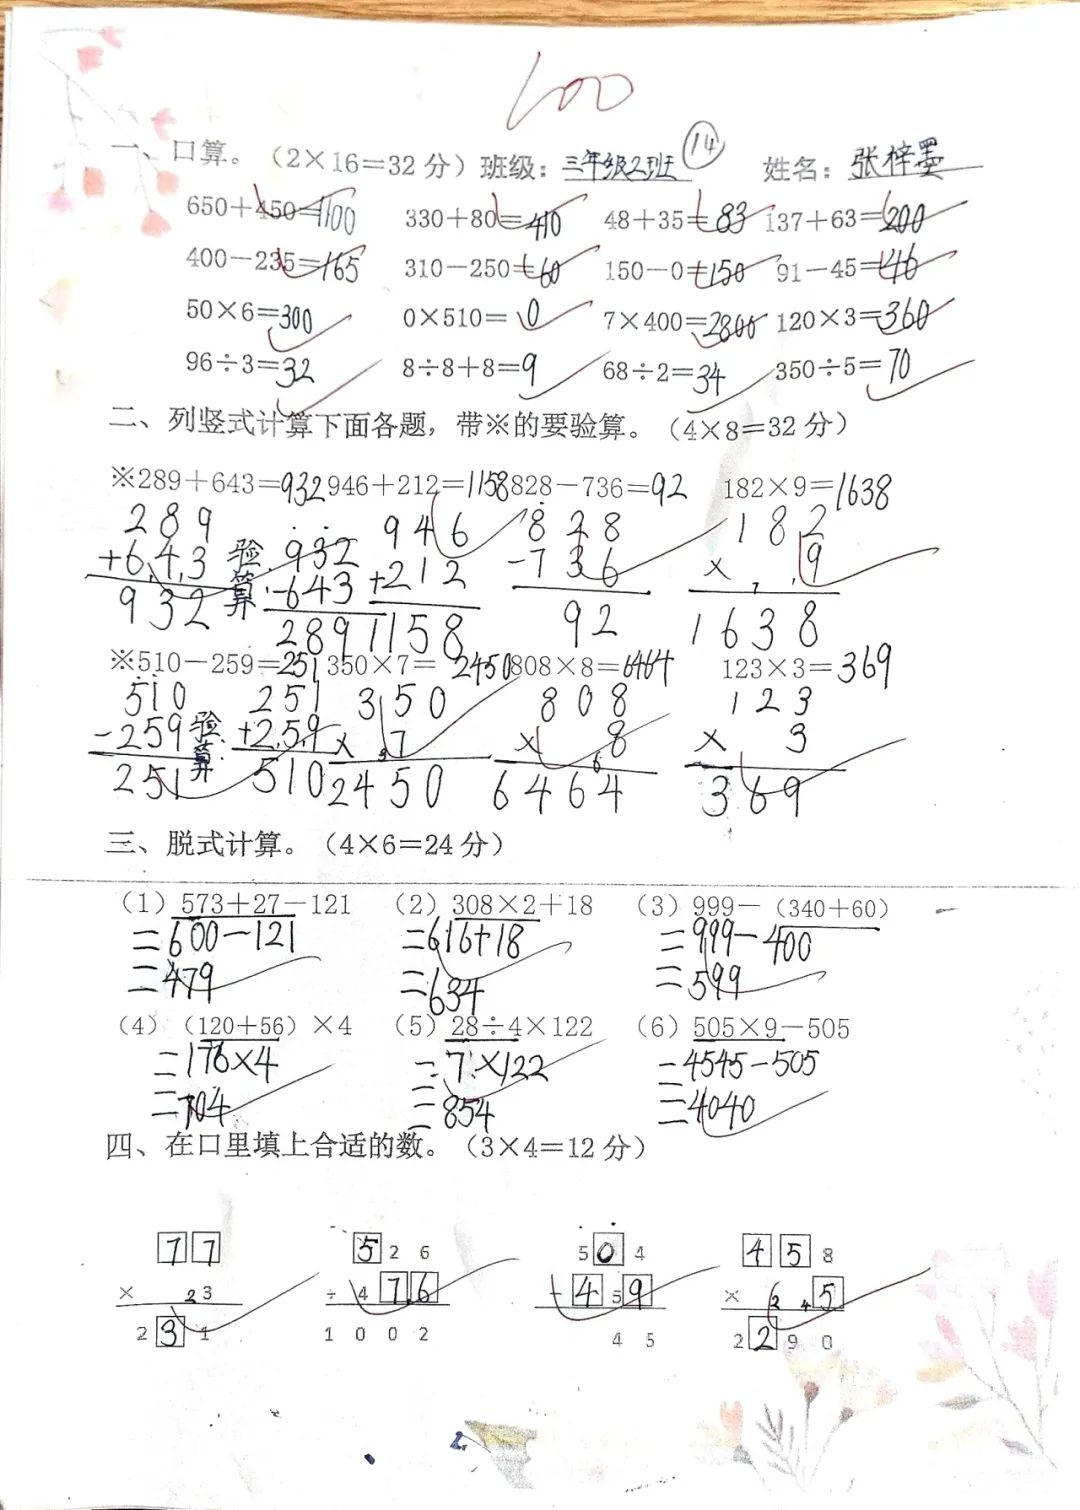 100
一、口算。（2×16=32 分）班级：三年级2班 14 姓名：张梓墨
650+450=1100 330+80=410 48+35=83 137+63=200
400-235=165 310-250=60 150-0=150 91-45=46
50×6=300 0×510=0 7×400=2800 120×3=360
96÷3=32 8÷8+8=9 68÷2=34 350÷5=70
二、列竖式计算下面各题，带※的要验算。（4×8=32 分）
※289+643=932 946+212=1158 828-736=92 182×9=1638
289 932 946 828 182
+643 验算: -643 +212 -736 × 9
932 289 1158 92 1638
※510-259=251 350×7=2450 808×8=6464 123×3=369
510 251 350 808 123
-259 验算: +259 × 7 × 8 × 3
251 510 2450 6464 369
三、脱式计算。（4×6=24 分）
（1）573+27-121 （2）308×2+18 （3）999-（340+60）
=600-121 =616+18 =999-400
=479 =634 =599
（4）（120+56）×4 （5）28÷4×122 （6）505×9-505
=176×4 =7×122 =4545-505
=704 =854 =4040
四、在口里填上合适的数。（3×4=12 分）
77 526 504 458
× 23 ÷ 476 - 459 × 2 4 5
231 1002 45 2290